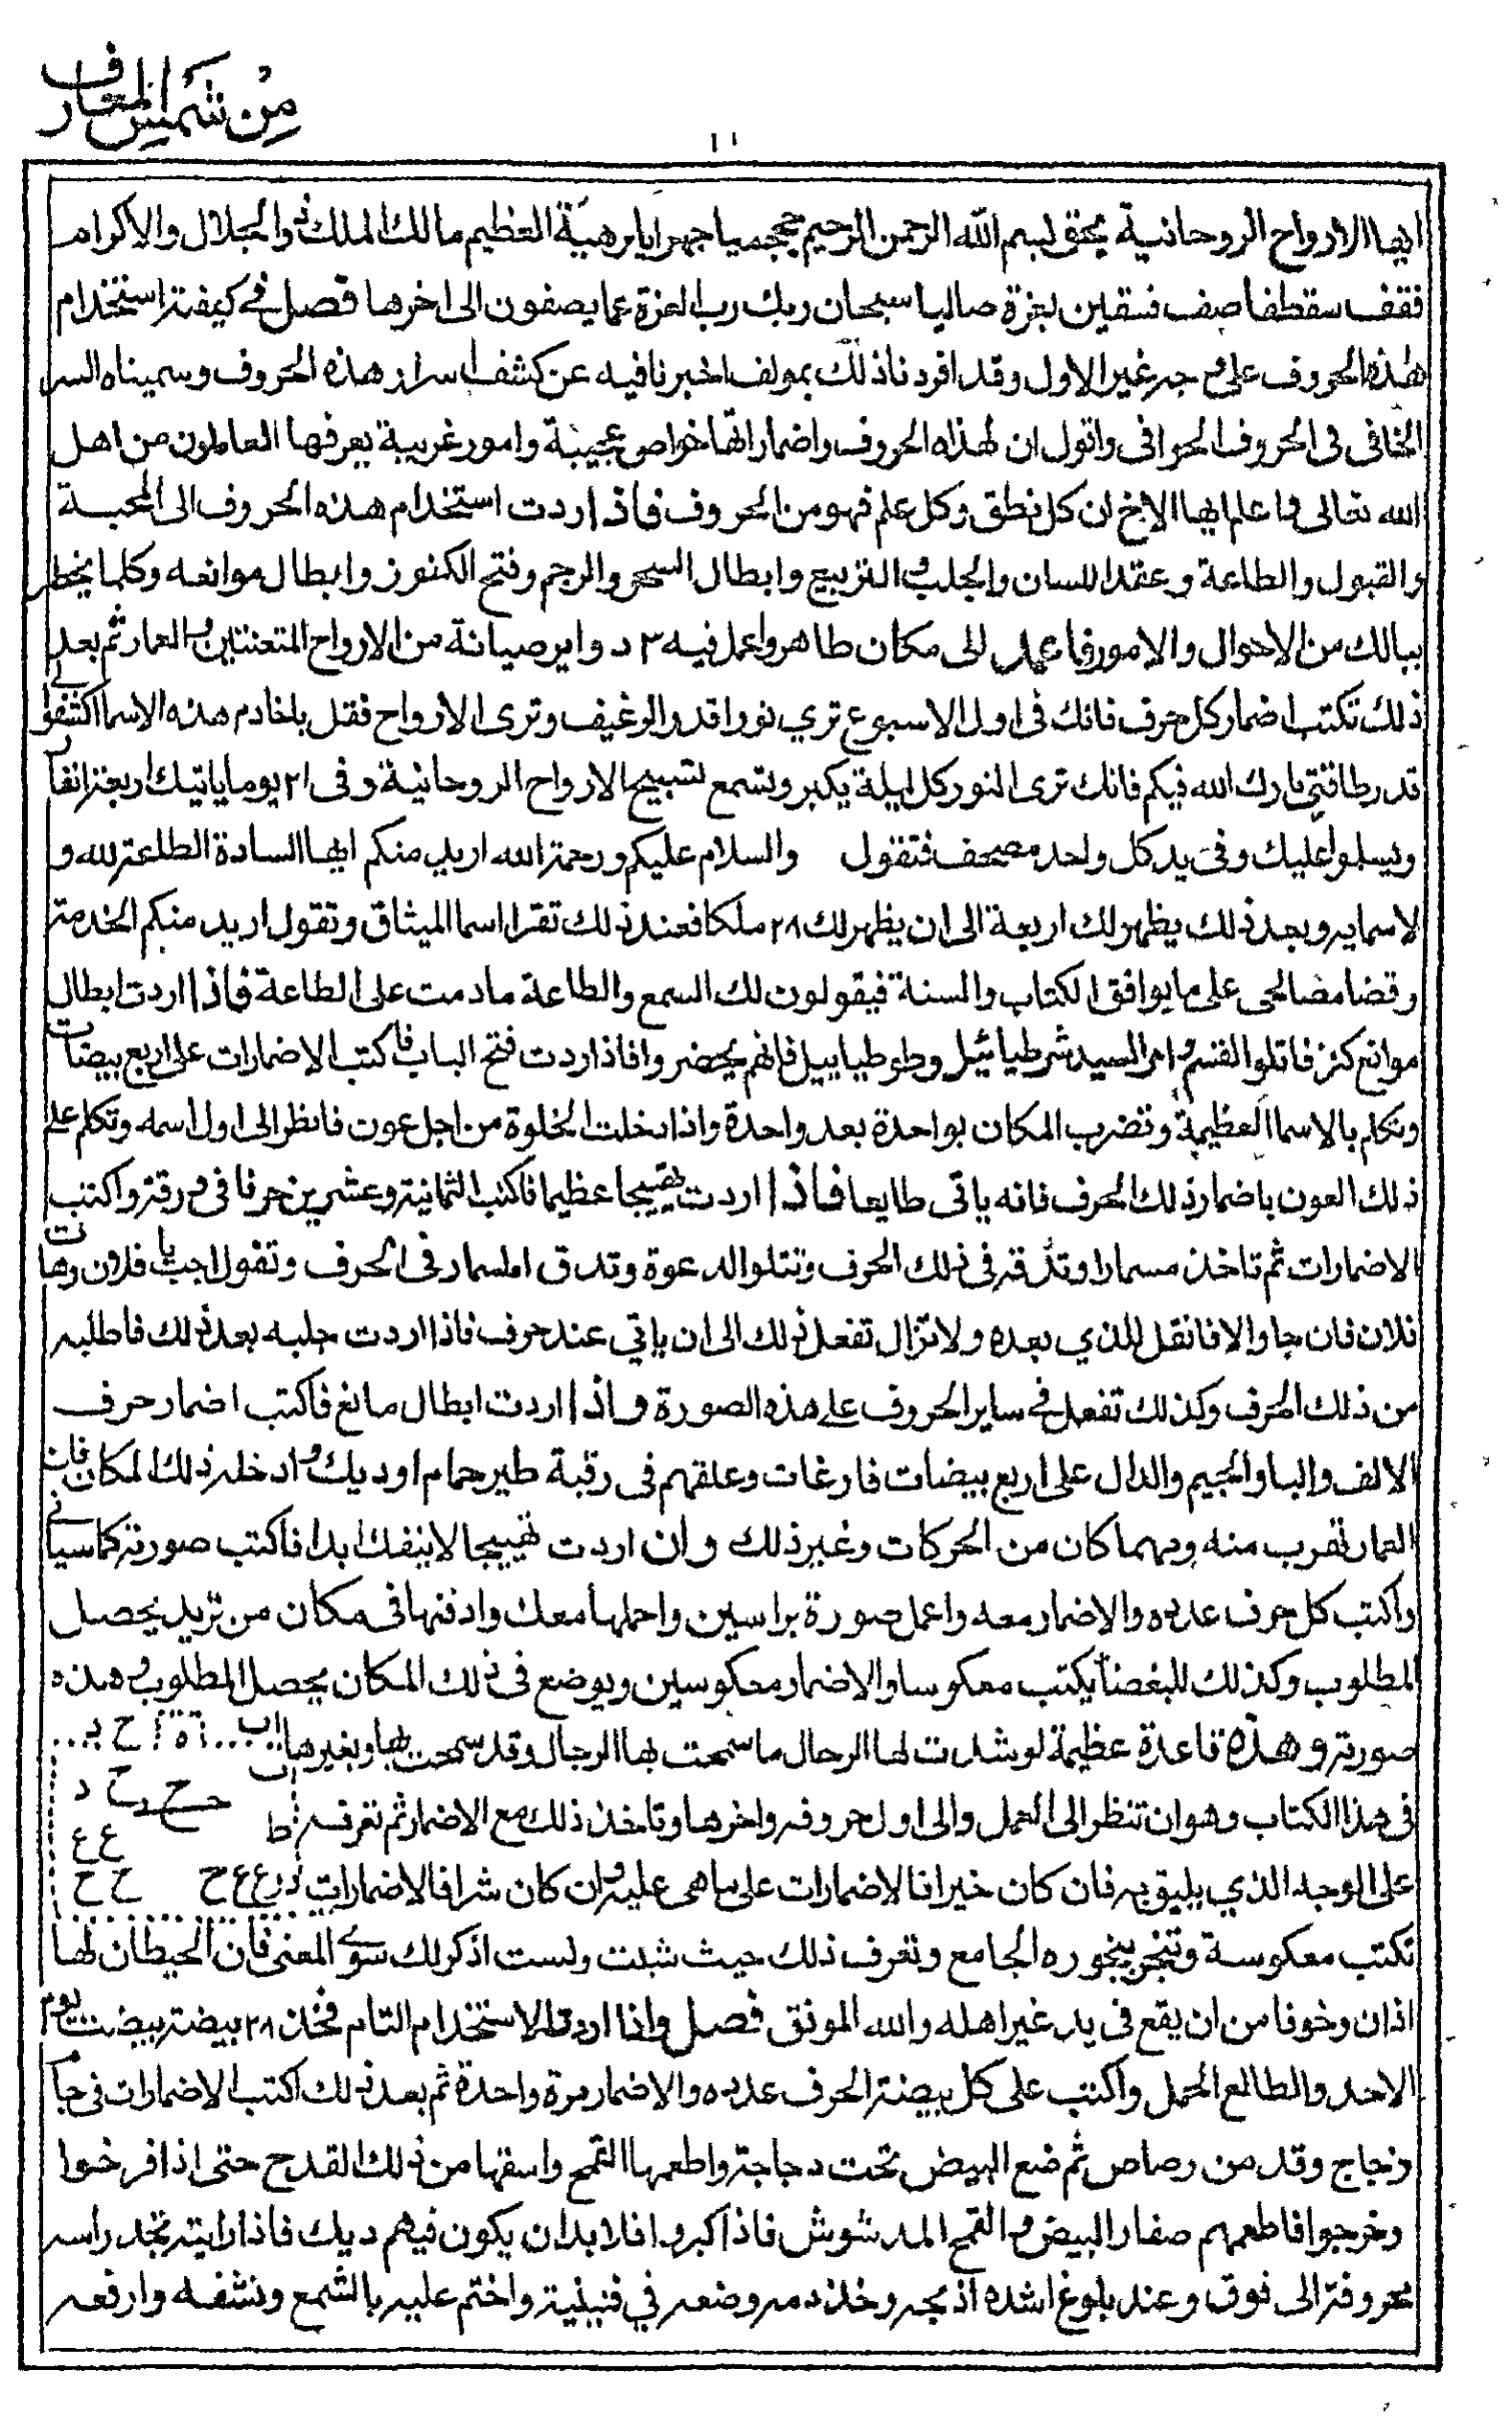 من شمس المعارف
١١
ايها الارواح الروحانية بحق لبسم الله الرحمن الرحيم العظيم مالك الملك ذو الجلال والاكرام
فقف سقطفا صف فسقين بعزة صاليا سبحان ربك رب العزة عما يصفون الى اخرها فصل في كيفية استخدام
هذه الحروف على وجه غير الاول وقد افردنا ذلك بمولف اخبرنا فيه عن كشف اسرار هذه الحروف وسميناه السر
الخافى فى الحروف الحوافى واقول ان لهذه الحروف واضماراتها خواص عجيبة وامور غريبة يعرفها العالمون من اهل
الله تعالى فاعلم ايها الاخ ان كل نطق وكل علم فهو من الحروف فاذا اردت استخدام هذه الحروف الى المحبة
والقبول والطاعة وعقد اللسان والجلب والنزبيع وابطال السحر والرجم وفتح الكنوز وابطال موانعه وكلما يخطر
ببالك من الاحوال والامور فاعمد الى مكان طاهر واعمل فيه ٣ دواير صيانة من الارواح المتعنتين والعمار ثم بعد
ذلك تكتب اضمار كل حرف فانك فى اول الاسبوع تري نورا قدر الرغيف وترى الارواح فقل ياخادم هذه الاسما اكشفوا لي
قدر طاقتي بارك الله فيكم فانك ترى النور كل ليلة يكبر وتسمع تسبيح الارواح الروحانية وفى ٢١ يوما ياتيك اربعة انفار
ويسلموا عليك وفى يد كل واحد مصحف فتقول والسلام عليكم ورحمة الله اريد منكم ايها السادة الطاعة لله و
لاسمايه وبعد ذلك يظهر لك اربعة الى ان يظهر لك ٢٨ ملكا فعند ذلك تقرا اسما الميثاق وتقول اريد منكم الخدمة
وقضا مصالحى على ما يوافق الكتاب والسنة فيقولون لك السمع والطاعة ما دمت على الطاعة فاذا اردت ابطال
موانع كنز فاتلوا القسم وامر السيد شرطيائيل وطوطياييل فانهم يحضروا فاذا اردت فتح الباب فاكتب الاضمارات على اربع بيضات
وتكلم بالاسما العظيمة وتضرب المكان بواحدة بعد واحدة واذا دخلت الخلوة من اجل عون فانظر الى اول اسمه وتكلم على
ذلك العون باضمار ذلك الحرف فانه ياتى طايعا فاذا اردت تهييجا عظيما فاكتب الثمانية وعشرين حرفا فى ورقة واكتب
الاضمارات ثم تاخذ مسمارا وتدقه فى ذلك الحرف وتتلوا الدعوة وتدق المسمار فى الحرف وتقول اجب يا فلان وهات
فلان فان جا والا فانقل للذي بعده ولا تزال تفعل ذلك الى ان ياتي عند حرف فاذا اردت جلبه بعد ذلك فاطلبه
من ذلك الحرف وكذلك تفعل في ساير الحروف على هذه الصورة واذا اردت ابطال مانع فاكتب اضمار حرف
الالف والبا والجيم والدال على اربع بيضات فارغات وعلقهم فى رقبة طير حمام او ديك وادخله ذلك المكان فان
العمار تهرب منه ومهما كان من الحركات وغير ذلك وان اردت تهييجا لا ينفك ابدا فاكتب صورته كما سياتي
واكتب كل حرف عدده والاضمار معه واعمل صورة براسين واحملها معك وادفنها فى مكان من تريد يحصل
المطلوب وكذلك للبغضا يكتب معكوسا والاضمار معكوسين ويوضع فى ذلك المكان يحصل المطلوب وهذه
صورته وهذه قاعدة عظيمة لو شدت لها الرحال ما سمحت بها الرجال وقد سمحت بها وبغيرها
فى هذا الكتاب وهو ان تنظر الى العمل والى اول حروفه واخرها وتاخذ ذلك مع الاضمار ثم تعرفه
على الوجه الذي يليق به فان كان خيرا فالاضمارات على ما هى عليه وان كان شرا فالاضمارات
تكتب معكوسة وتبخر ببخوره الجامع وتعرف ذلك حيث شيت ولست اذكر لك سوى المعنى فان الحيطان لها
اذان وخوفا من ان يقع فى يد غير اهله والله الموفق فصل واذا اردت الاستخدام التام فخذ ٢٨ بيضة بيضت يوم
الاحد والطالع الحمل واكتب على كل بيضة الحرف عدده والاضمار مرة واحدة ثم بعد ذلك اكتب الاضمارات فى جام
زجاج وقد من رصاص ثم ضع البيض تحت دجاجة واطعمها القمح واسقها من ذلك القدح حتى اذا افرخوا
وخرجوا فاطعمهم صفار البيض والقمح المدشوش فاذا كبروا فلا بد ان يكون فيهم ديك فاذا رايته تجد راسه
معروفة الى فوق وعند بلوغ اشده اذبحه وخذ دمه وضعه في قنينية واختم عليه بالشمع ونشفه وارفعه